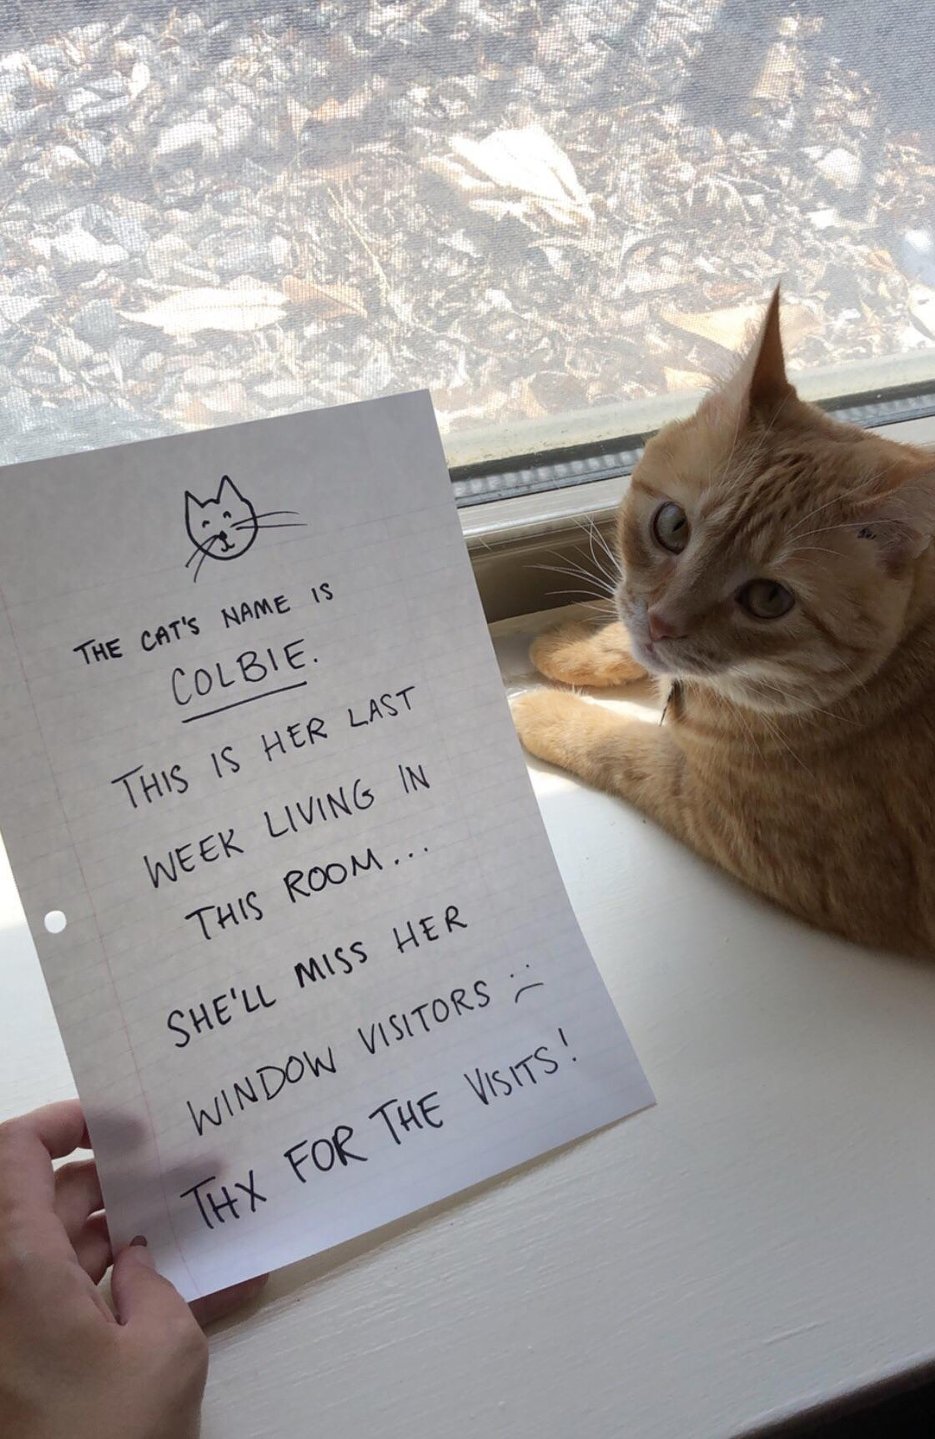 THE CAT'S NAME IS
COLBIE.
THIS IS HER LAST
WEEK LIVING IN
THIS ROOM...
SHE'LL MISS HER
WINDOW VISITORS :(
THX FOR THE VISITS!